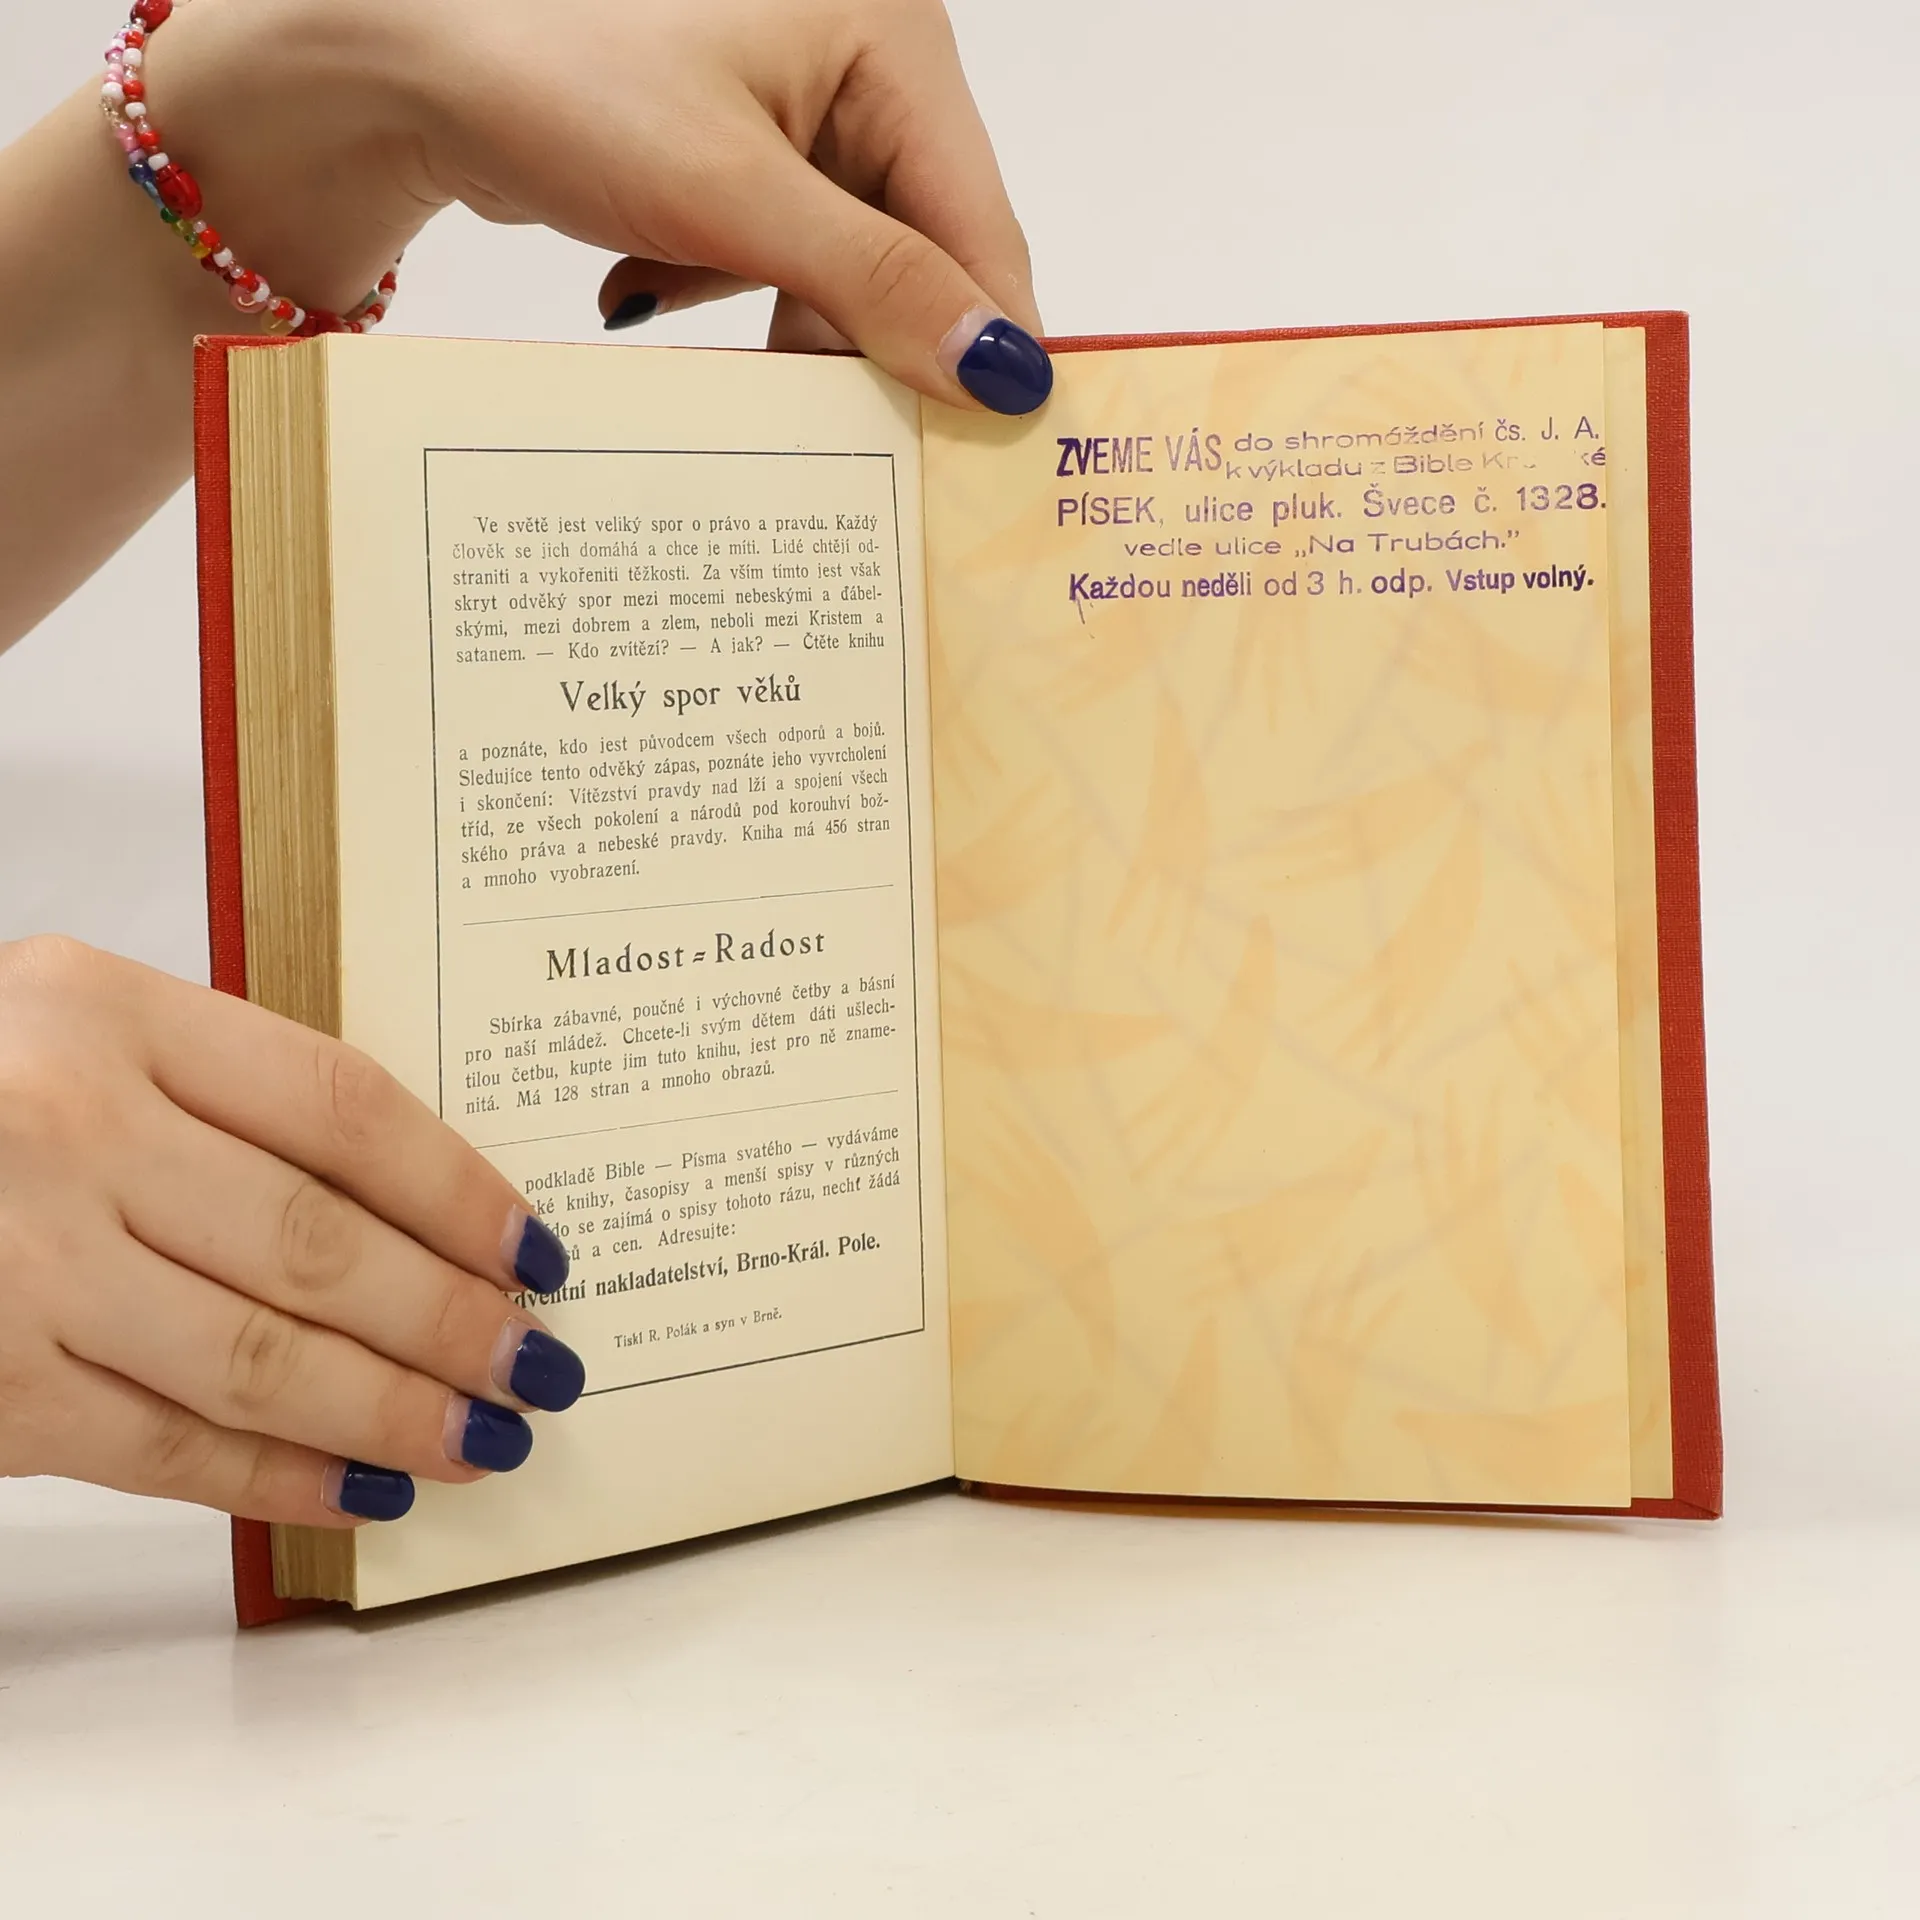 Ve světě jest veliký spor o právo a pravdu. Každý
člověk se jich domáhá a chce je míti. Lidé chtějí od-
straniti a vykořeniti těžkosti. Za vším tímto jest však
skryt odvěký spor mezi mocemi nebeskými a ďábel-
skými, mezi dobrem a zlem, neboli mezi Kristem a
satanem. — Kdo zvítězí? — A jak? — Čtěte knihu
Velký spor věků
a poznáte, kdo jest původcem všech odporů a bojů.
Sledujíce tento odvěký zápas, poznáte jeho vyvrcholení
i skončení: Vítězství pravdy nad lží a spojení všech
tříd, ze všech pokolení a národů pod korouhví bož-
ského práva a nebeské pravdy. Kniha má 456 stran
a mnoho vyobrazení.
Mladost=Radost
Sbírka zábavné, poučné i výchovné četby a básní
pro naší mládež. Chcete-li svým dětem dáti ušlech-
tilou četbu, kupte jim tuto knihu, jest pro ně zname-
nitá. Má 128 stran a mnoho obrazů.
podkladě Bible — Písma svatého — vydáváme
knihy, časopisy a menší spisy v různých
se zajímá o spisy tohoto rázu, nechť žádá
a cen. Adresujte:
nakladatelství, Brno-Král. Pole.
Tiskl R. Polák a syn v Brně.
ZVEME VÁS do shromáždění čs. J. A.
k výkladu z Bible
PÍSEK, ulice pluk. Švece č. 1328.
vedle ulice „Na Trubách.”
Každou neděli od 3 h. odp. Vstup volný.